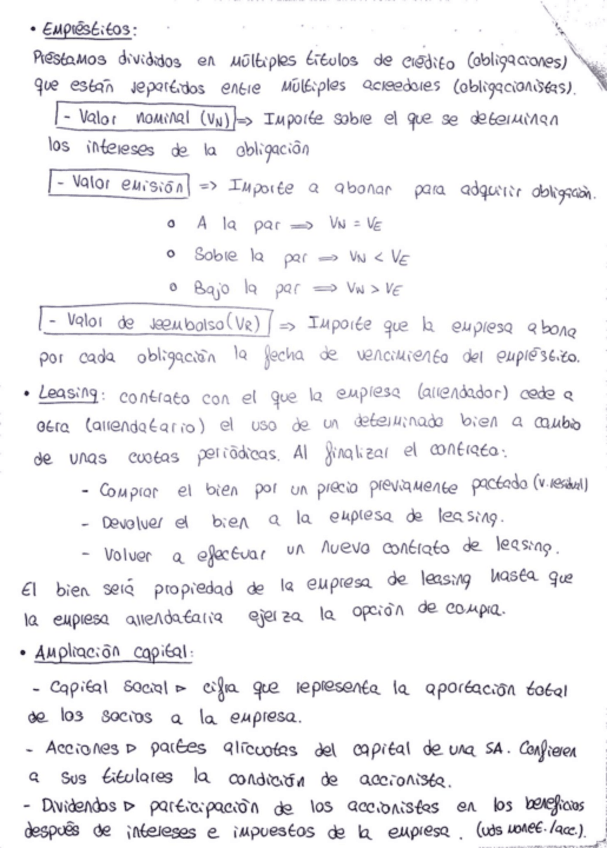 • Empréstitos:
Préstamos divididos en múltiples títulos de crédito (obligaciones)
que están repartidos entre múltiples acreedores (obligacionistas).
- Valor nominal (VN) => Importe sobre el que se determinan
los intereses de la obligación
- Valor emisión => Importe a abonar para adquirir obligación.
o A la par => VN = VE
o Sobre la par => VN < VE
o Bajo la par => VN > VE
- Valor de reembolso (VR) => Importe que la empresa abona
por cada obligación la fecha de vencimiento del empréstito.
• Leasing: contrato con el que la empresa (arrendador) cede a
otra (arrendatario) el uso de un determinado bien a cambio
de unas cuotas periódicas. Al finalizar el contrato:
- Comprar el bien por un precio previamente pactado (v. residual)
- Devolver el bien a la empresa de leasing.
- Volver a efectuar un nuevo contrato de leasing.
El bien será propiedad de la empresa de leasing hasta que
la empresa arrendataria ejerza la opción de compra.
• Ampliación capital:
- Capital social ▹ cifra que representa la aportación total
de los socios a la empresa.
- Acciones ▹ partes alícuotas del capital de una SA. Confieren
a sus titulares la condición de accionista.
- Dividendos ▹ participación de los accionistas en los beneficios
después de intereses e impuestos de la empresa. (uds monet./acc.).